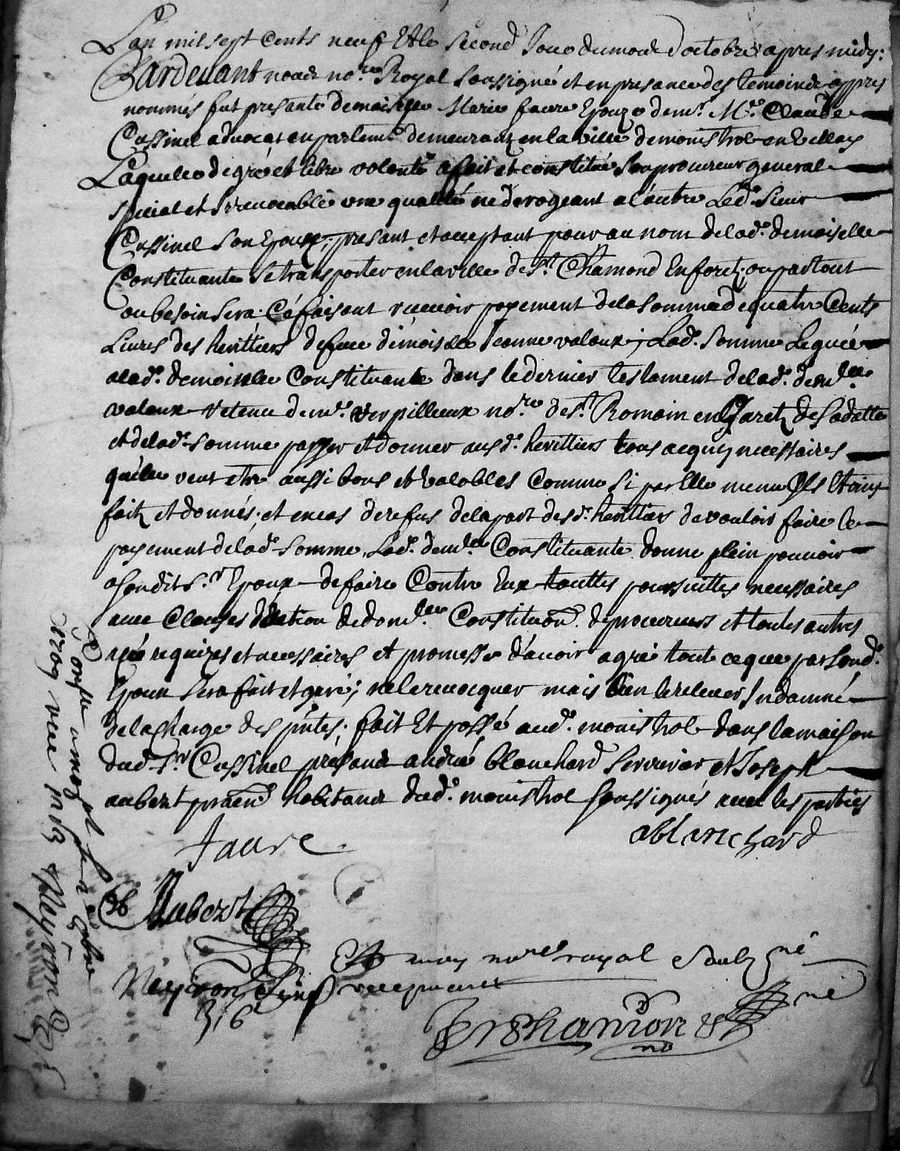 L'an mil sept cents neuf Et le second Jour du mois d'octobre apres midy.
Pardevant nous no.re Royal soussigné et en presance des temoins appres
nommes fut presante demoiselle Marie faure Epouze de m.r M.e Claude
Cussinel advocat en parlem.t demeurant en la ville de monistrol en Vellay
Laquelle de gré et libre volonté a fait et constitué son procureur general
special et Irrevocable une qualité ne derogeant a l'autre Led. sieur
Cussinel son Epoux, presant et acceptant pour au nom de lad. demoiselle
Constituante se transporter en la ville de S.t Chamond En forez, ou partout
ou besoin sera. Ce faisant recevoir payement de la somme de quatre Cents
Livres des herittiers de feue demoiselle Jeanne valoux; Lad. somme Leguée
a lad. demoiselle Constituante dans le dernier testament de lad. dem.lle
valoux retenu de m.r verpillieux no.re de S.t Romain en Jarez de sa datte
et de lad. somme passer et donner ausd. herittiers tous acquis necessaires
qu'elle veut estre aussi bons et valobles Comme si par Elle meme Ils Etoint
faitz et donnés. et en cas de refus de la part desd. herittiers de vouloir faire le
payement de lad. somme, Lad. dem.lle Constituante donne plein pouvoir
a sondit S.r Epoux de faire Contre Eux touttes poursuittes necessaires
avec Clauses d'Election de dom.lle Constitu.on de procureurs et toutes autres
requizes et necessaires et promesse d'avoir agréé tout ce que par sond.
Epoux sera fait et geré; ne le revocquer mais bien le relever Indamné
de la charge des p.ntes. fait Et passé aud. monistrol dans la maison
dud. S.r Cussinel presants andré blanchard serrurier et Joseph
aubert habitants dud. monistrol soussignés avec les parties
faure
ablanchard
Aubert
Et moy no.re royal soubzigné
Neyron
recepvant